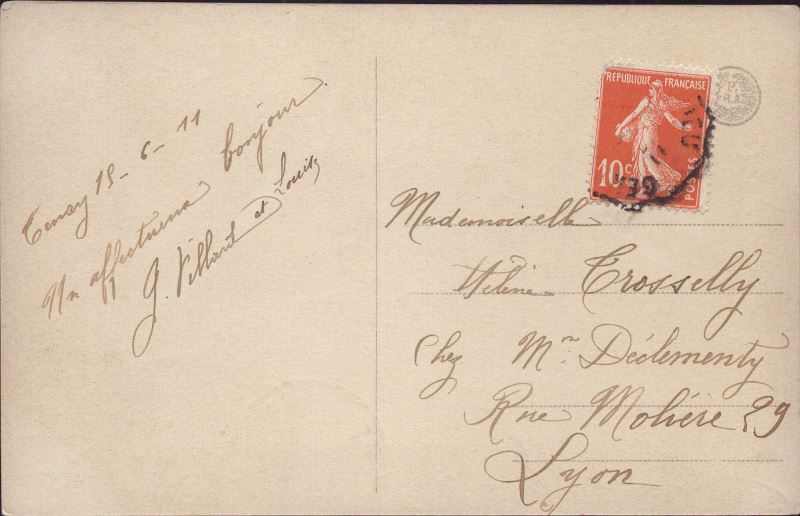 Tenay 15-6-11
Un affectueux bonjour
G. Villard et Louis
RÉPUBLIQUE FRANÇAISE
10 c
POSTES
Mademoiselle
Hélène Trosselly
Chez Mr Déclementy
Rue Molière 29
Lyon